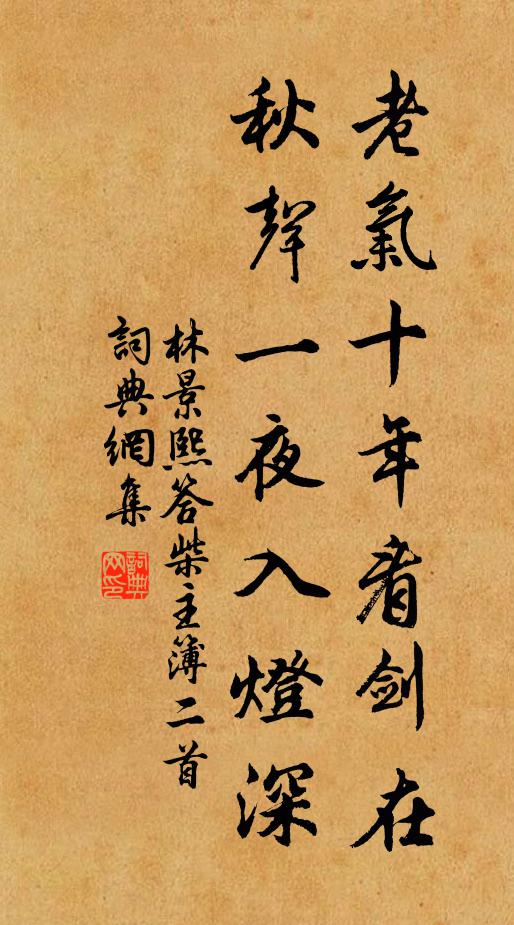 老氣十年看劍在
秋聲一夜入燈深
林景熙答柴主簿二首
詞典網集
詞典網印